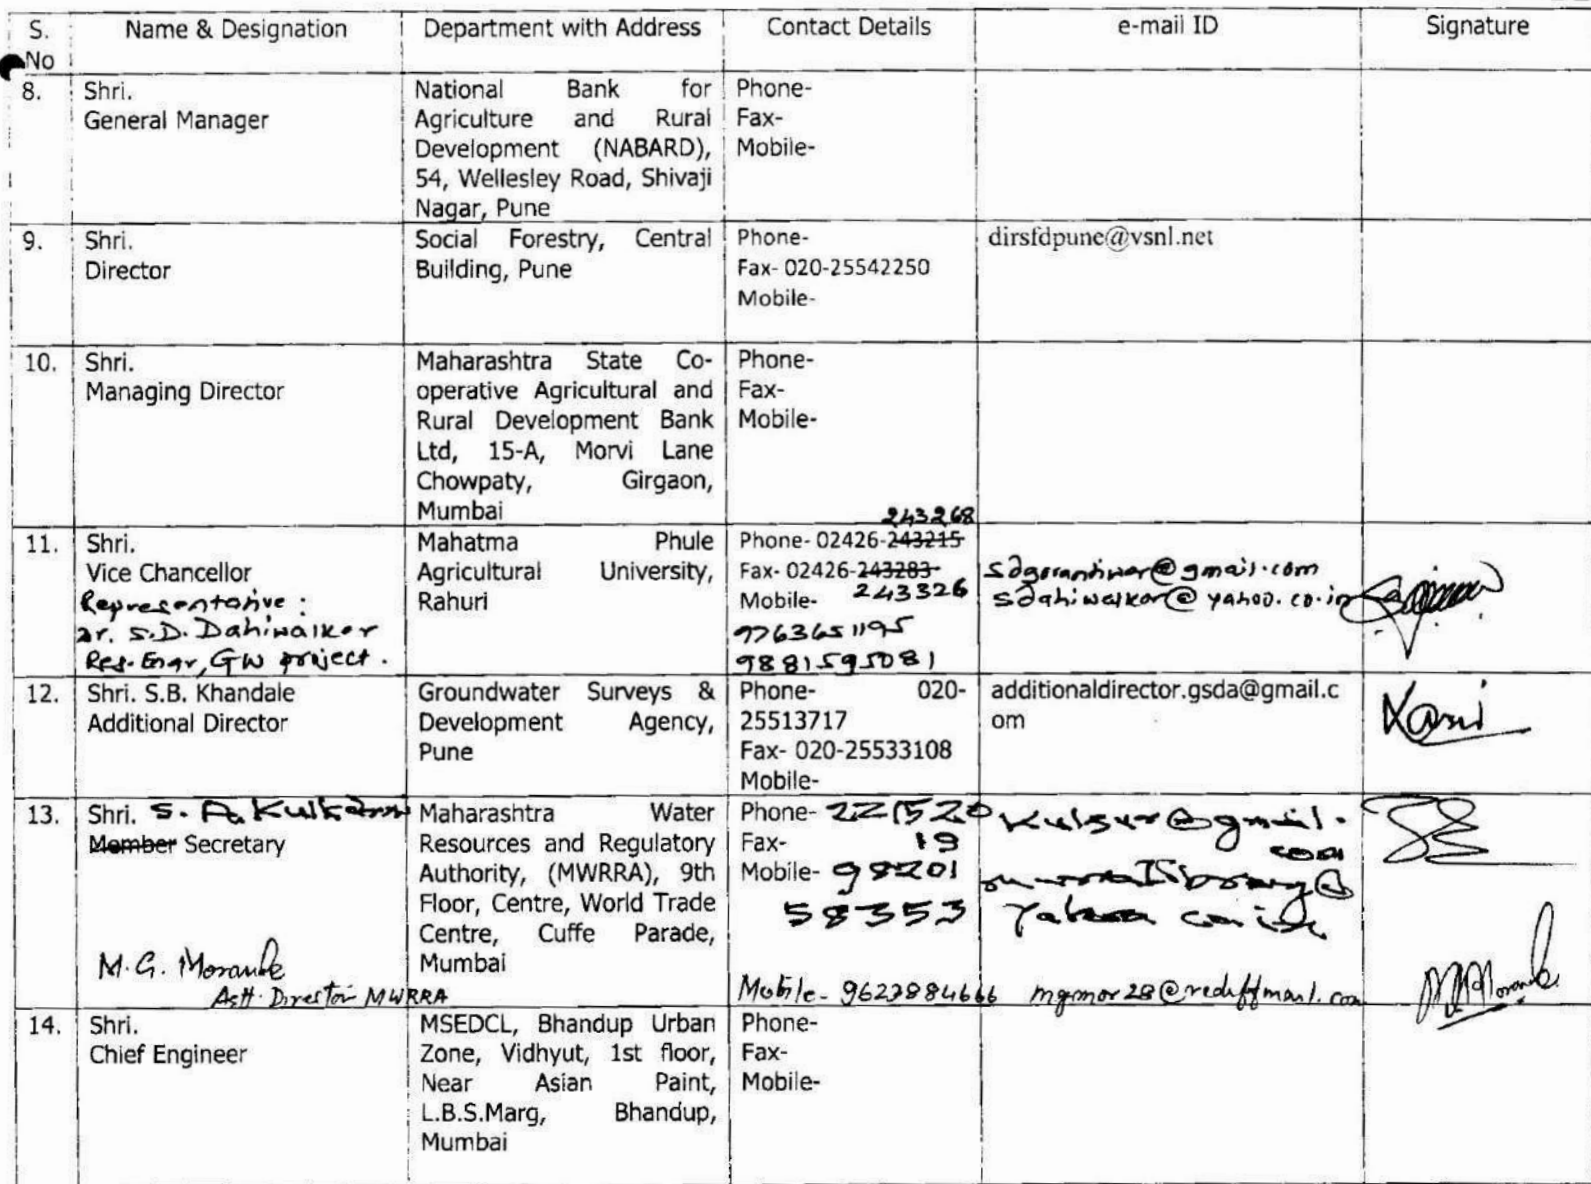 S. No | Name & Designation | Department with Address | Contact Details | e-mail ID | Signature
8.
Shri.
General Manager
National Bank for
Agriculture and Rural
Development (NABARD),
54, Wellesley Road, Shivaji
Nagar, Pune
Phone-
Fax-
Mobile-
9.
Shri.
Director
Social Forestry, Central
Building, Pune
Phone-
Fax- 020-25542250
Mobile-
dirsfdpune@vsnl.net
10.
Shri.
Managing Director
Maharashtra State Co-
operative Agricultural and
Rural Development Bank
Ltd, 15-A, Morvi Lane
Chowpaty, Girgaon,
Mumbai
Phone-
Fax-
Mobile-
11.
Shri.
Vice Chancellor
Representative:
Dr. S.D. Dahiwalkar
Res. Engr, GW project.
Mahatma Phule
Agricultural University,
Rahuri
243268
Phone- 02426-243215
Fax- 02426-243283
Mobile- 243326
9763651195
9881595081
sdgorantiwar@gmail.com
sdahiwalkar@yahoo.co.in
12.
Shri. S.B. Khandale
Additional Director
Groundwater Surveys &
Development Agency,
Pune
Phone- 020-
25513717
Fax- 020-25533108
Mobile-
additionaldirector.gsda@gmail.c
om
13.
Shri. S. A. Kulkarni
Member Secretary
M.G. Morande
Astt. Director MWRRA
Maharashtra Water
Resources and Regulatory
Authority, (MWRRA), 9th
Floor, Centre, World Trade
Centre, Cuffe Parade,
Mumbai
Phone- 221520
Fax- 19
Mobile- 98201
58353
Mobile- 9623884666
kulsur@gmail.
com
mgmor28@rediffmail.com
14.
Shri.
Chief Engineer
MSEDCL, Bhandup Urban
Zone, Vidhyut, 1st floor,
Near Asian Paint,
L.B.S.Marg, Bhandup,
Mumbai
Phone-
Fax-
Mobile-